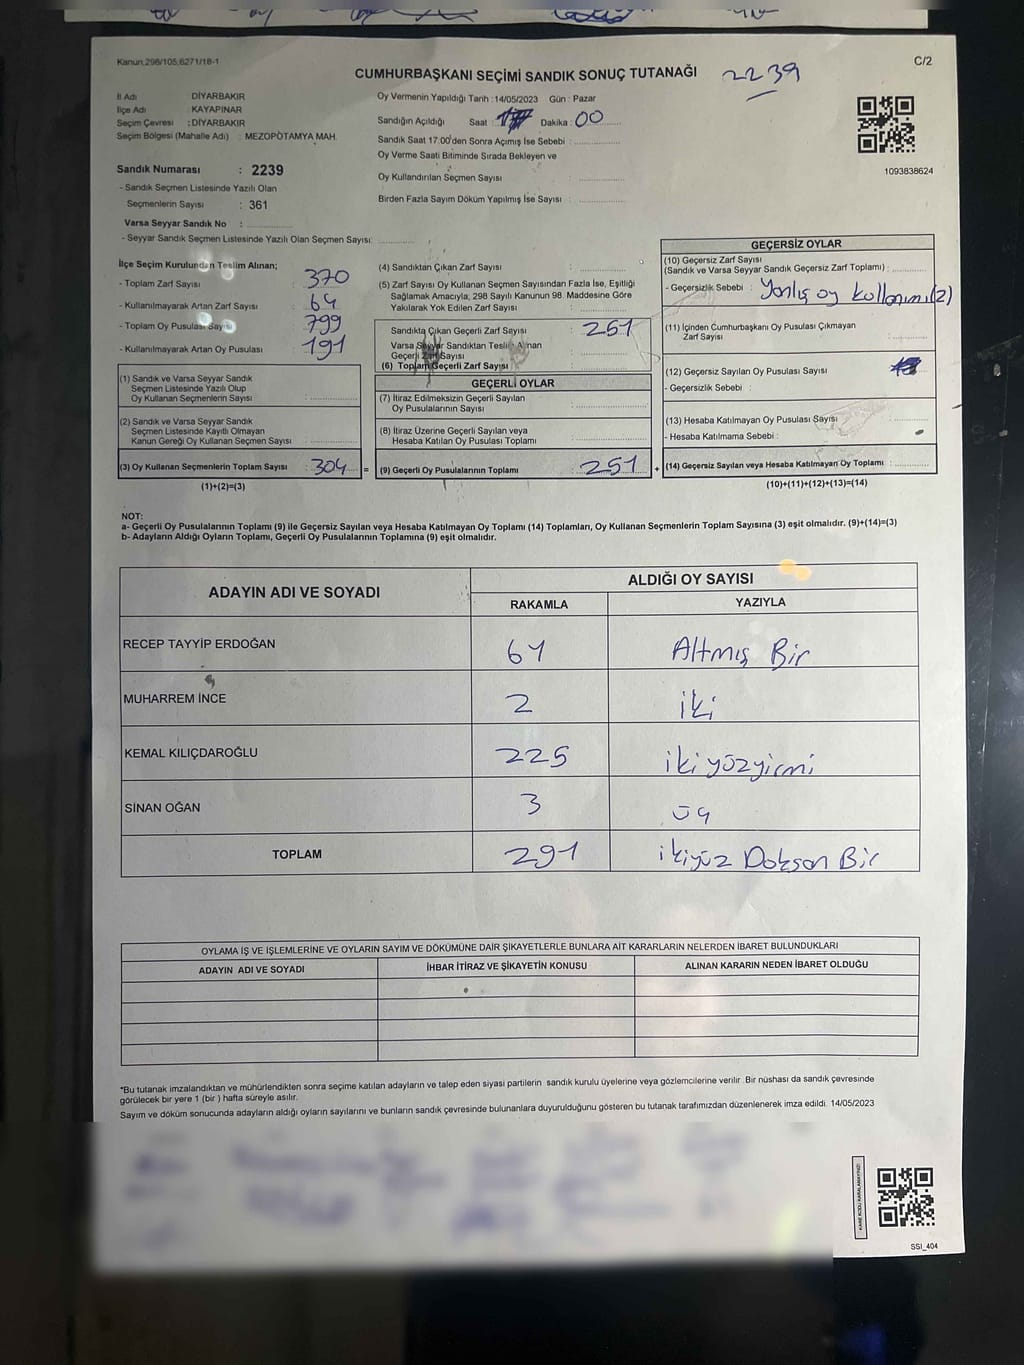 Kanun,298/105;6271/18-1
C/2
CUMHURBAŞKANI SEÇİMİ SANDIK SONUÇ TUTANAĞI
2239
İl Adı : DİYARBAKIR
İlçe Adı : KAYAPINAR
Seçim Çevresi : DİYARBAKIR
Seçim Bölgesi (Mahalle Adı) : MEZOPOTAMYA MAH.
Oy Vermenin Yapıldığı Tarih :14/05/2023 Gün : Pazar
Sandığın Açıldığı Saat : Dakika : 00
Sandık Saat 17:00'den Sonra Açımış İse Sebebi :
Oy Verme Saati Bitiminde Sırada Bekleyen ve
Oy Kullandırılan Seçmen Sayısı :
Birden Fazla Sayım Döküm Yapılmış İse Sayısı :
1093838624
Sandık Numarası : 2239
- Sandık Seçmen Listesinde Yazılı Olan
Seçmenlerin Sayısı : 361
Varsa Seyyar Sandık No :
- Seyyar Sandık Seçmen Listesinde Yazılı Olan Seçmen Sayısı:
İlçe Seçim Kurulundan Teslim Alınan;
- Toplam Zarf Sayısı : 370
- Kullanılmayarak Artan Zarf Sayısı : 64
- Toplam Oy Pusulası Sayısı : 799
- Kullanılmayarak Artan Oy Pusulası : 191
(1) Sandık ve Varsa Seyyar Sandık
Seçmen Listesinde Yazılı Olup
Oy Kullanan Seçmenlerin Sayısı :
(2) Sandık ve Varsa Seyyar Sandık
Seçmen Listesinde Kayıtlı Olmayan
Kanun Gereği Oy Kullanan Seçmen Sayısı :
(3) Oy Kullanan Seçmenlerin Toplam Sayısı : 304 =
(1)+(2)=(3)
(4) Sandıktan Çıkan Zarf Sayısı :
(5) Zarf Sayısı Oy Kullanan Seçmen Sayısından Fazla İse, Eşitliği
Sağlamak Amacıyla; 298 Sayılı Kanunun 98. Maddesine Göre
Yakılarak Yok Edilen Zarf Sayısı :
Sandıkta Çıkan Geçerli Zarf Sayısı : 251
Varsa Seyyar Sandıktan Teslim Alınan
Geçerli Zarf Sayısı :
(6) Toplam Geçerli Zarf Sayısı :
GEÇERLİ OYLAR
(7) İtiraz Edilmeksizin Geçerli Sayılan
Oy Pusulalarının Sayısı :
(8) İtiraz Üzerine Geçerli Sayılan veya
Hesaba Katılan Oy Pusulası Toplamı :
(9) Geçerli Oy Pusulalarının Toplamı : 251 +
GEÇERSİZ OYLAR
(10) Geçersiz Zarf Sayısı
(Sandık ve Varsa Seyyar Sandık Geçersiz Zarf Toplamı) :
- Geçersizlik Sebebi : Yanlış oy kullanımı(2)
(11) İçinden Cumhurbaşkanı Oy Pusulası Çıkmayan
Zarf Sayısı :
(12) Geçersiz Sayılan Oy Pusulası Sayısı :
- Geçersizlik Sebebi :
(13) Hesaba Katılmayan Oy Pusulası Sayısı :
- Hesaba Katılmama Sebebi :
(14) Geçersiz Sayılan veya Hesaba Katılmayan Oy Toplamı :
(10)+(11)+(12)+(13)=(14)
NOT:
a- Geçerli Oy Pusulalarının Toplamı (9) ile Geçersiz Sayılan veya Hesaba Katılmayan Oy Toplamı (14) Toplamları, Oy Kullanan Seçmenlerin Toplam Sayısına (3) eşit olmalıdır. (9)+(14)=(3)
b- Adayların Aldığı Oyların Toplamı, Geçerli Oy Pusulalarının Toplamına (9) eşit olmalıdır.
ADAYIN ADI VE SOYADI
ALDIĞI OY SAYISI
RAKAMLA YAZIYLA
RECEP TAYYİP ERDOĞAN 61 Altmış Bir
MUHARREM İNCE 2 iki
KEMAL KILIÇDAROĞLU 225 ikiyüzyirmi
SİNAN OĞAN 3 üç
TOPLAM 291 ikiyüz Doksan Bir
OYLAMA İŞ VE İŞLEMLERİNE VE OYLARIN SAYIM VE DÖKÜMÜNE DAİR ŞİKAYETLERLE BUNLARA AİT KARARLARIN NELERDEN İBARET BULUNDUKLARI
ADAYIN ADI VE SOYADI İHBAR İTİRAZ VE ŞİKAYETİN KONUSU ALINAN KARARIN NEDEN İBARET OLDUĞU
*Bu tutanak imzalandıktan ve mühürlendikten sonra seçime katılan adayların ve talep eden siyasi partilerin sandık kurulu üyelerine veya gözlemcilerine verilir. Bir nüshası da sandık çevresinde
görülecek bir yere 1 (bir ) hafta süreyle asılır.
Sayım ve döküm sonucunda adayların aldığı oyların sayılarını ve bunların sandık çevresinde bulunanlara duyurulduğunu gösteren bu tutanak tarafımızdan düzenlenerek imza edildi. 14/05/2023
KARE KODU KARALAMAYINIZ!
SSI_404